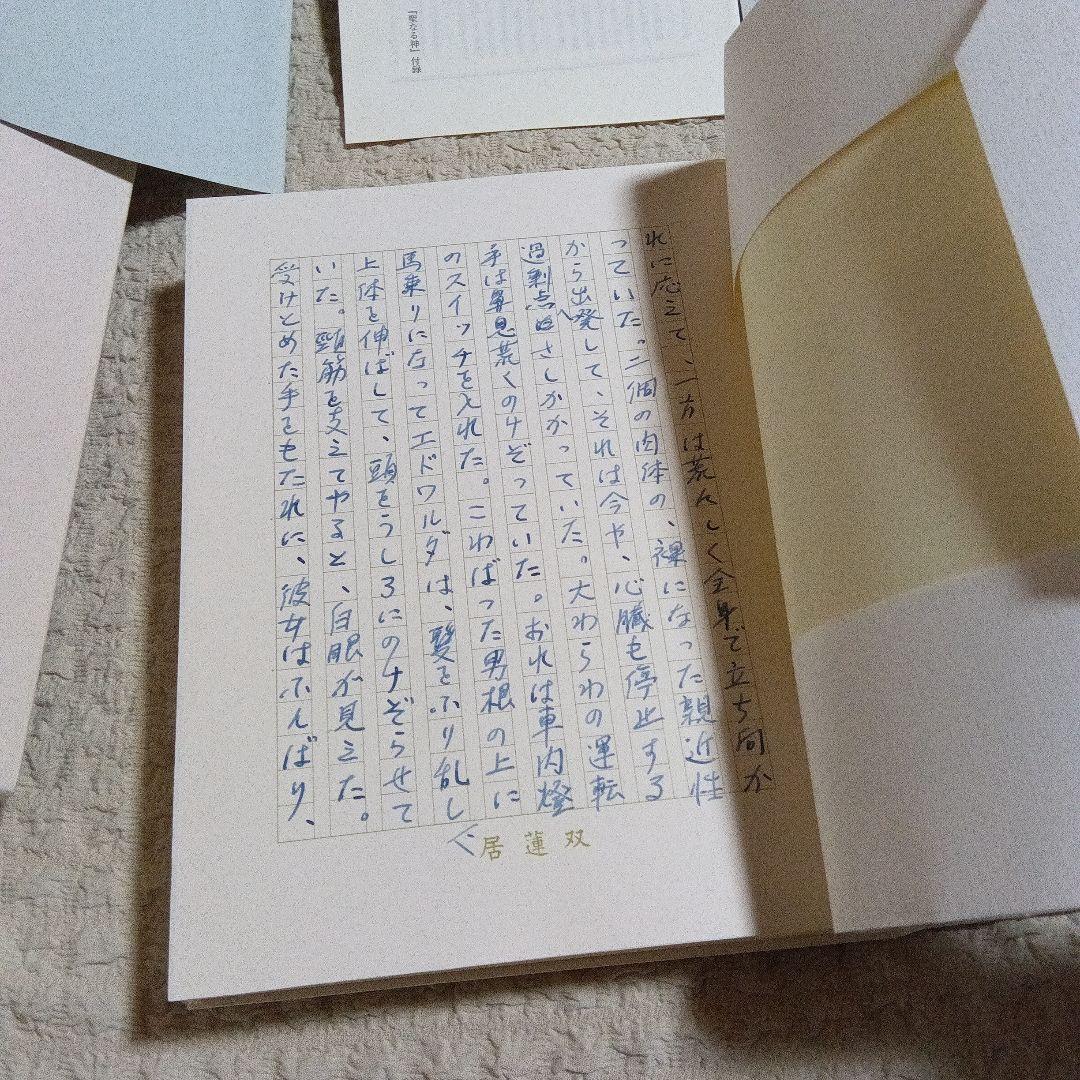 『聖なる神』付録
れに応えて、一方は荒々しく全身で立ち向か
っていた。二個の肉体の、裸になった親近性
から出発して、それは今や、心臓も停止する
過剰点へさしかかっていた。大わらわの運転
手は鼻息荒くのけぞっていた。おれは車内燈
のスイッチを入れた。こわばった男根の上に
馬乗りになってエドワルダは、髪をふり乱し
上体を伸ばして、頭をうしろにのけぞらせて
いた。頸筋を支えてやると、白眼が見えた。
受けとめた手をもたれに、彼女はふんばり、
双蓮居